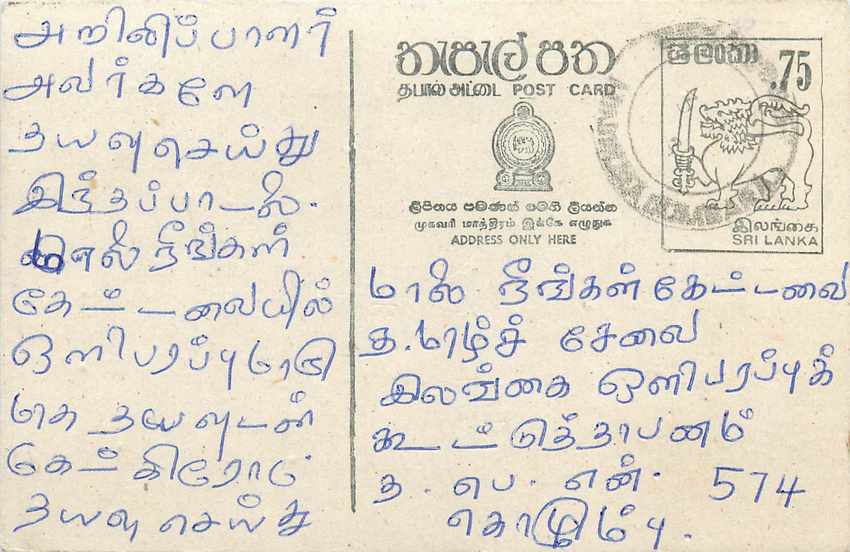 அறிவிப்பாளர்
அவர்களே
தயவுசெய்து
இந்தப்பாடலை
மாலை நீங்கள்
கேட்டவையில்
ஒளிபரப்புமாறு
தயவுடன்
கேட்கிறோம்
தயவு செய்து
තැපැල් පත
தபால் அட்டை POST CARD
ලිපිනය පමණක් මෙහි ලියන්න
முகவரி மாத்திரம் இங்கே எழுதுக
ADDRESS ONLY HERE
ශ්‍රී ලංකා
.75
இலங்கை
SRI LANKA
மாலை நீங்கள் கேட்டவை
தமிழ்ச் சேவை
இலங்கை ஒளிபரப்புக்
கூட்டுத்தாபனம்
த. பெ. என். 574
கொழும்பு.